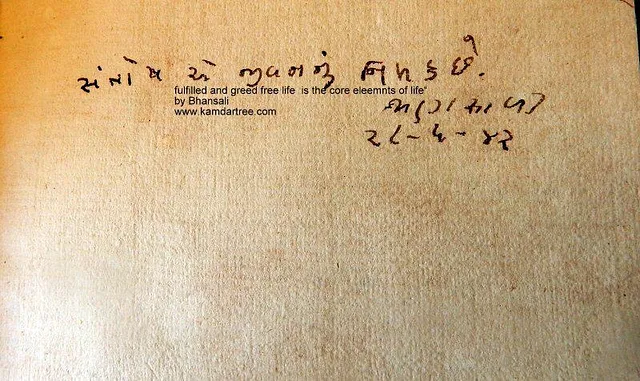 સંતોષ એ જીવનનું નિમક છે.
fulfilled and greed free life is the core eleemnts of life"
by Bhansali
www.kamdartree.com